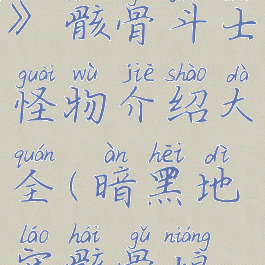 》 骸骨斗士
guài wù jiè shào dà
怪物介绍大
quán àn hēi dì
全(暗黑地
láo hái gǔ niáng
骸骨